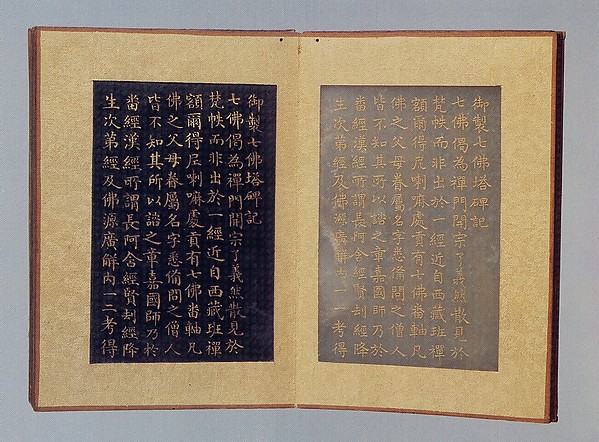 御製七佛塔碑記
七佛偈為禪門開宗了義然散見於
梵帙而非出於一經近自西藏班禪
額爾得尼喇嘛處貢有七佛畨軸凡
佛之父母眷屬名字悉備問之僧人
皆不知其所以諮之章嘉國師乃於
畨經漢經所謂長阿含經賢刼經降
生次第經及佛源廣解內一一考得
御製七佛塔碑記
七佛偈為禪門開宗了義然散見於
梵帙而非出於一經近自西藏班禪
額爾得尼喇嘛處貢有七佛畨軸凡
佛之父母眷屬名字悉備問之僧人
皆不知其所以諮之章嘉國師乃於
畨經漢經所謂長阿含經賢刼經降
生次第經及佛源廣解內一一考得